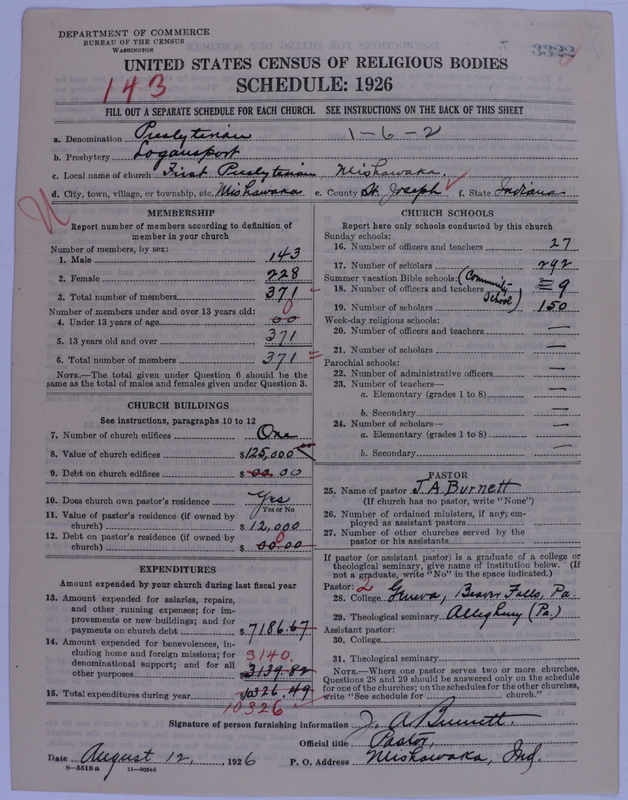 DEPARTMENT OF COMMERCE
BUREAU OF THE CENSUS
WASHINGTON
3322
UNITED STATES CENSUS OF RELIGIOUS BODIES
SCHEDULE: 1926
143
FILL OUT A SEPARATE SCHEDULE FOR EACH CHURCH. SEE INSTRUCTIONS ON THE BACK OF THIS SHEET
a. Denomination Presbyterian 1-6-2
b. Presbytery Logansport
c. Local name of church First Presbyterian Mishawaka.
d. City, town, village, or township, etc. Mishawaka e. County St. Joseph f. State Indiana
MEMBERSHIP
Report number of members according to definition of
member in your church
Number of members, by sex:
1. Male 143
2. Female 228
3. Total number of members 371
Number of members under and over 13 years old:
4. Under 13 years of age 00 0
5. 13 years old and over 371
6. Total number of members 371
NOTE.—The total given under Question 6 should be the
same as the total of males and females given under Question 3.
CHURCH BUILDINGS
See instructions, paragraphs 10 to 12
7. Number of church edifices One
8. Value of church edifices $125,000
9. Debt on church edifices $ 00.00
10. Does church own pastor's residence Yes
Yes or No
11. Value of pastor's residence (if owned by
church) $12,000
12. Debt on pastor's residence (if owned by
church) $ 00.00 0
EXPENDITURES
Amount expended by your church during last fiscal year
13. Amount expended for salaries, repairs,
and other running expenses; for im-
provements or new buildings; and for
payments on church debt $7186.67
14. Amount expended for benevolences, in-
cluding home and foreign missions; for
denominational support; and for all
other purposes 3140. $3139.82
15. Total expenditures during year $10326.49
10326
CHURCH SCHOOLS
Report here only schools conducted by this church
Sunday schools:
16. Number of officers and teachers 27
17. Number of scholars 292
Summer vacation Bible schools: (Community
18. Number of officers and teachers School) 9
19. Number of scholars 150
Week-day religious schools:
20. Number of officers and teachers —
21. Number of scholars —
Parochial schools:
22. Number of administrative officers —
23. Number of teachers—
a. Elementary (grades 1 to 8) —
b. Secondary —
24. Number of scholars—
a. Elementary (grades 1 to 8) —
b. Secondary —
PASTOR
25. Name of pastor J.A. Burnett
(If church has no pastor, write "None")
26. Number of ordained ministers, if any, em-
ployed as assistant pastors
27. Number of other churches served by the
pastor or his assistants
If pastor (or assistant pastor) is a graduate of a college or
theological seminary, give name of institution below. (If
not a graduate, write "No" in the space indicated.)
Pastor: 2
28. College Geneva, Beaver Falls, Pa.
29. Theological seminary Allegheny (Pa.)
Assistant pastor:
30. College
31. Theological seminary
NOTE.—Where one pastor serves two or more churches,
Questions 28 and 29 should be answered only on the schedule
for one of the churches; on the schedules for the other churches,
write "See schedule for church."
Signature of person furnishing information J. A. Burnett
Official title Pastor,
Date August 12, 1926 P. O. Address Mishawaka, Ind.
8—5518a 11—9054d